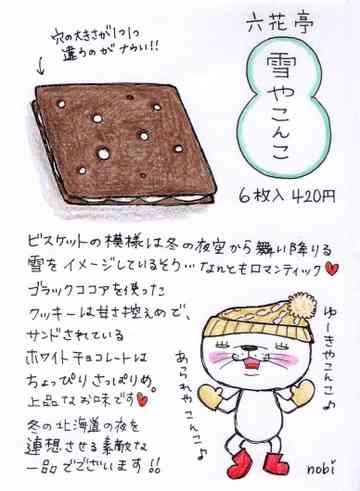 穴の大きさが1つ1つ
違うのがナウい!!
六花亭
雪やこんこ
6枚入 420円
ビスケットの模様は冬の夜空から舞い降りる
雪をイメージしているそう…なんともロマンティック♥
ブラックココアを使った
クッキーは甘さ控えめで、
サンドされている
ホワイトチョコレートは
ちょっぴりさっぱりめ。
上品なお味です♥
冬の北海道の夜を
連想させる素敵な
一品でございます!!
ゆーきやこんこ♪
あられやこんこ♪
nobi